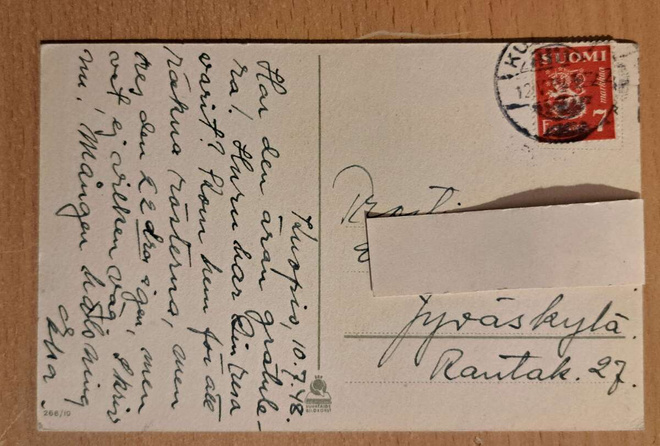 Kuopio, 10.7.48.
Har den äran gratule-
ra! Huru har Din resa
varit? Kom hem för att
räkna rösterna, men
reg den 2 dra igen, men
vet ej vilken väg. Skriv
nu! Mången hälsning
Elsa.
SUOMI
7 markkaa
KU
12
Jyväskylä.
Rautak. 27.
266/10